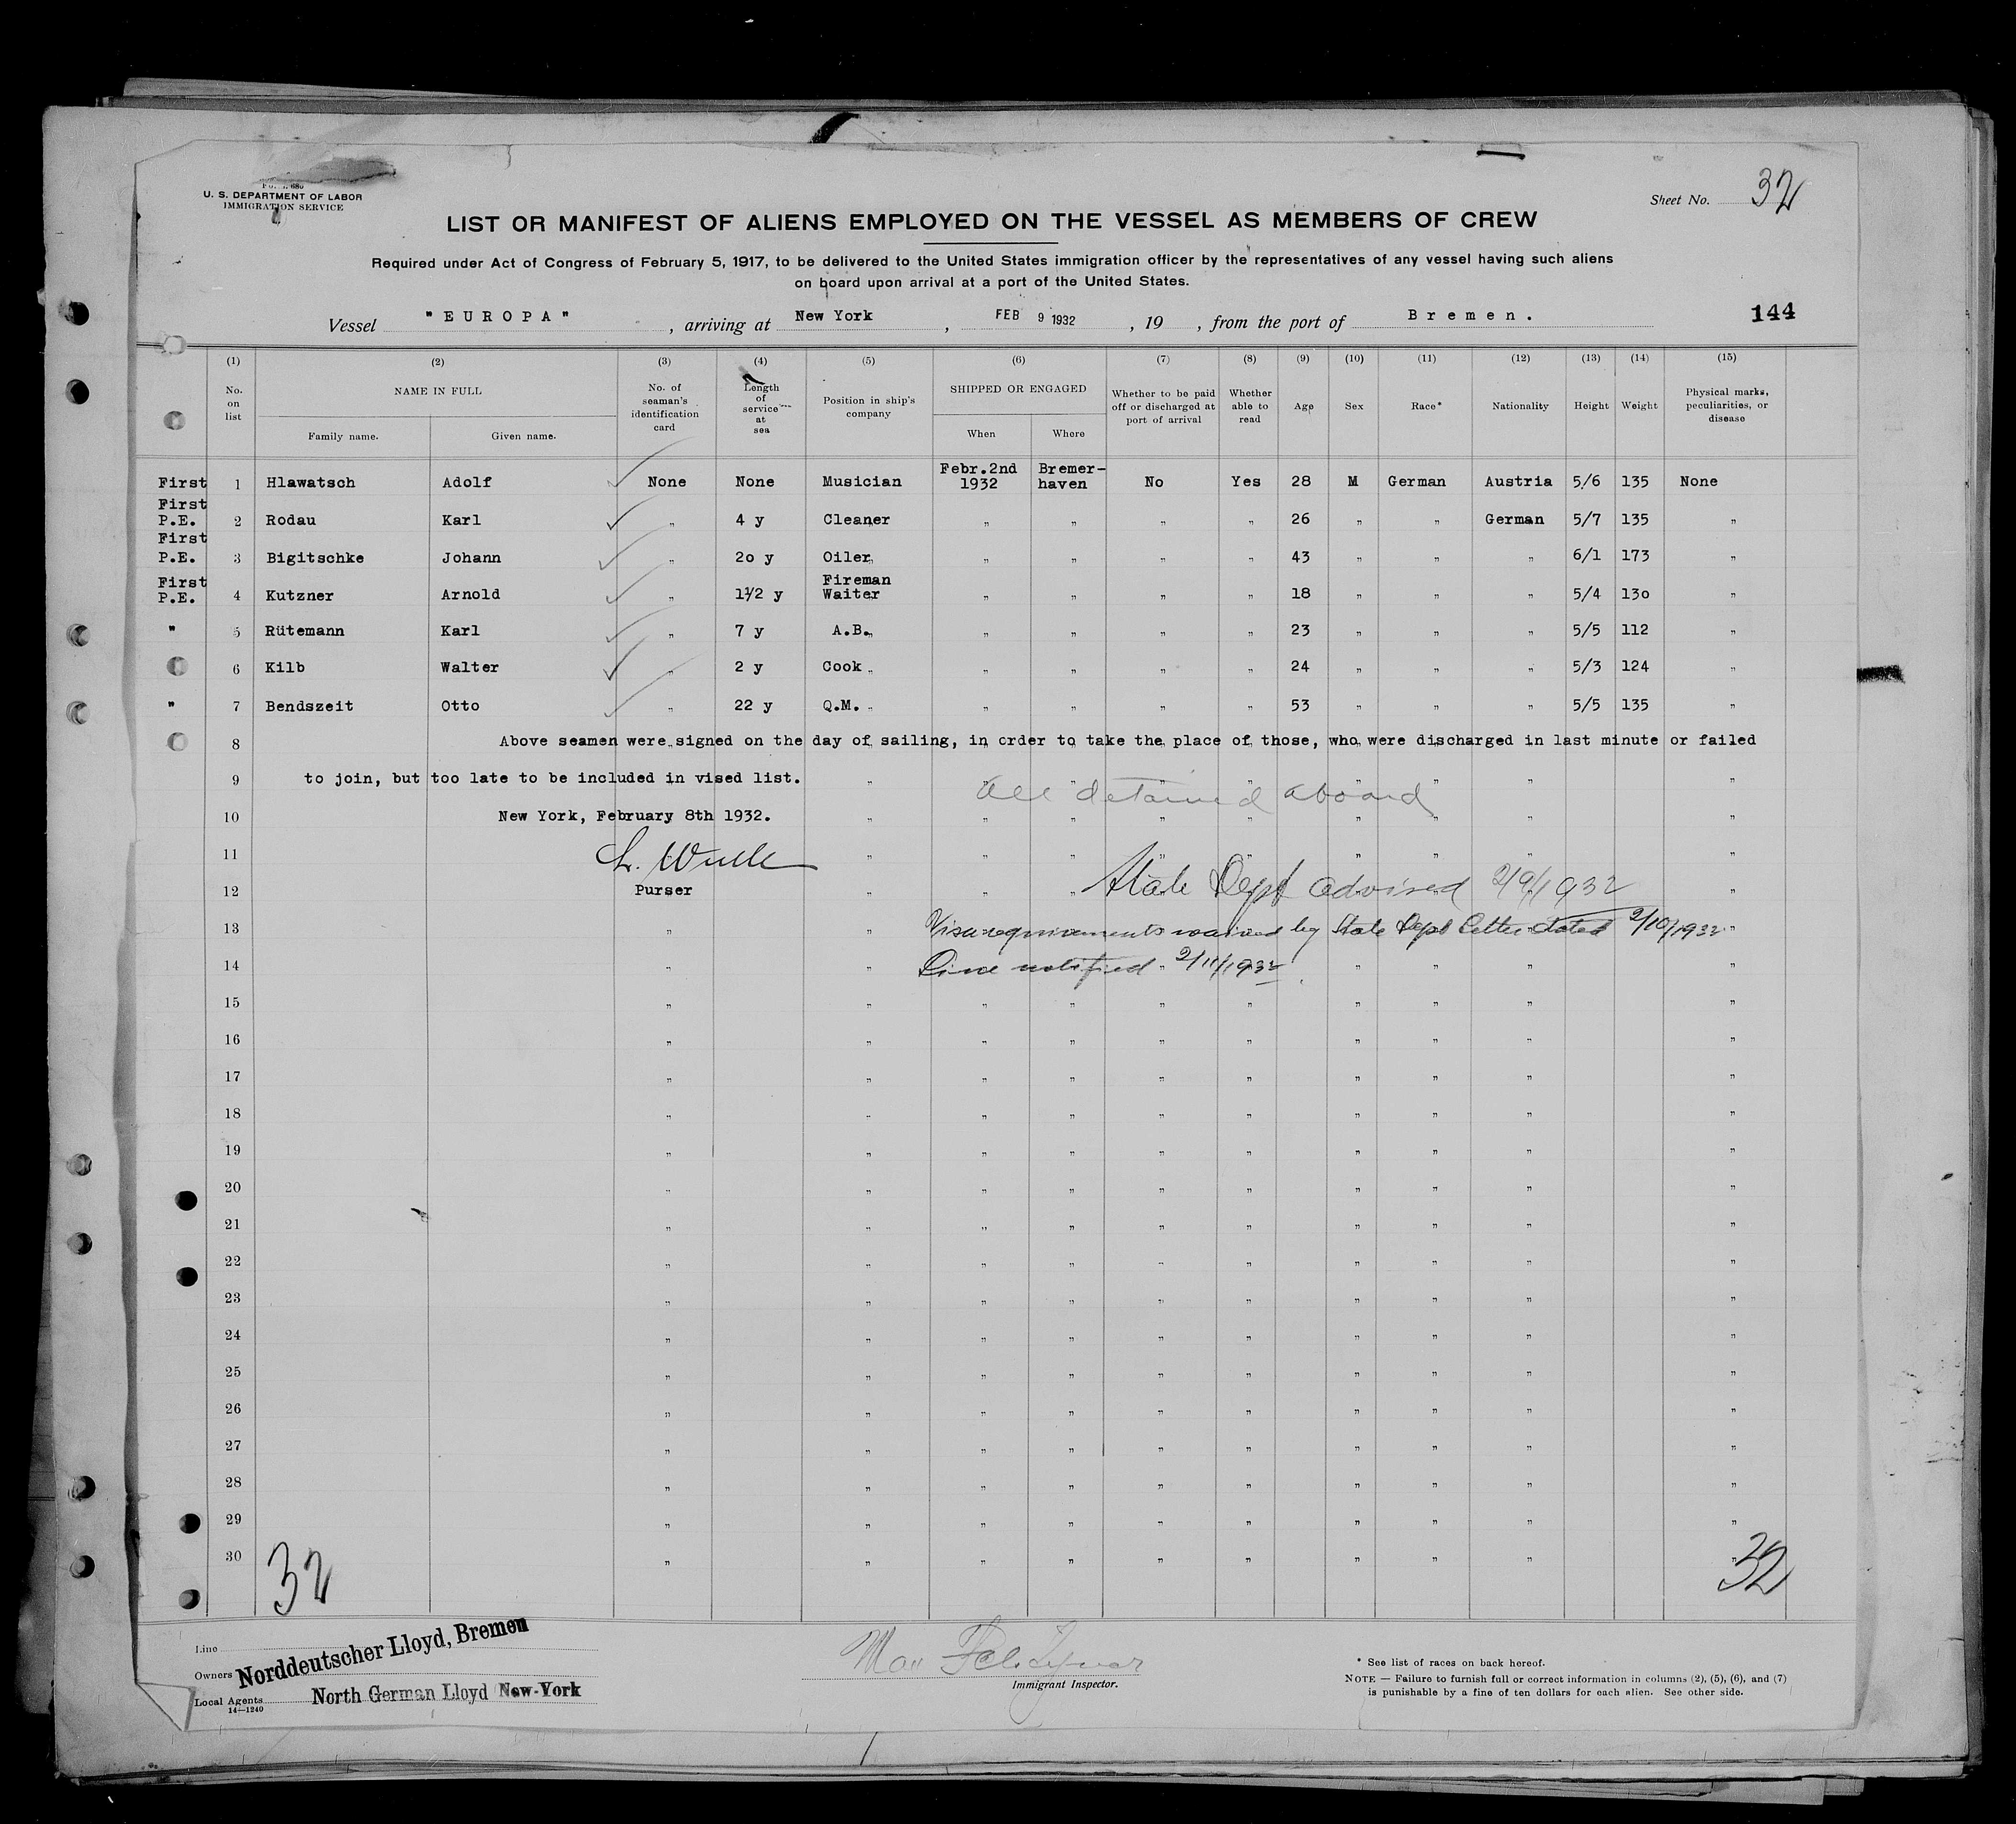 U. S. DEPARTMENT OF LABOR
IMMIGRATION SERVICE
Sheet No. 32
LIST OR MANIFEST OF ALIENS EMPLOYED ON THE VESSEL AS MEMBERS OF CREW
Required under Act of Congress of February 5, 1917, to be delivered to the United States immigration officer by the representatives of any vessel having such aliens
on board upon arrival at a port of the United States.
Vessel "EUROPA" , arriving at New York , FEB 9 1932 , 19 , from the port of Bremen. 144
(1) (2) (3) (4) (5) (6) (7) (8) (9) (10) (11) (12) (13) (14) (15)
No. on list NAME IN FULL Family name. Given name. No. of seaman's identification card Length of service at sea Position in ship's company SHIPPED OR ENGAGED When Where Whether to be paid off or discharged at port of arrival Whether able to read Age Sex Race* Nationality Height Weight Physical marks, peculiarities, or disease
First 1 Hlawatsch Adolf None None Musician Febr.2nd 1932 Bremer-haven No Yes 28 M German Austria 5/6 135 None
First P.E. 2 Rodau Karl " 4 y Cleaner " " " " 26 " " German 5/7 135 "
First P.E. 3 Bigitschke Johann " 2o y Oiler " " " " 43 " " " 6/1 173 "
First P.E. 4 Kutzner Arnold " 1½ y Fireman Waiter " " " " 18 " " " 5/4 13o "
" 5 Rütemann Karl " 7 y A.B. " " " " 23 " " " 5/5 112 "
6 Kilb Walter " 2 y Cook " " " " " 24 " " " 5/3 124 "
" 7 Bendszeit Otto " 22 y Q.M. " " " " " 53 " " " 5/5 135 "
8 Above seamen were signed on the day of sailing, in order to take the place of those, who were discharged in last minute or failed
9 to join, but too late to be included in vised list.
All detained aboard
10 New York, February 8th 1932.
11
12 Purser State Dept advised 2/9/1932
13 Visa requirements waived by State Dept letter dated 2/10/1932
14 Line notified 2/11/1932
15
16
17
18
19
20
21
22
23
24
25
26
27
28
29
30
32 32
Line
Owners Norddeutscher Lloyd, Bremen
Local Agents North German Lloyd New-York
14—1240
Immigrant Inspector.
* See list of races on back hereof.
NOTE — Failure to furnish full or correct information in columns (2), (5), (6), and (7)
is punishable by a fine of ten dollars for each alien. See other side.